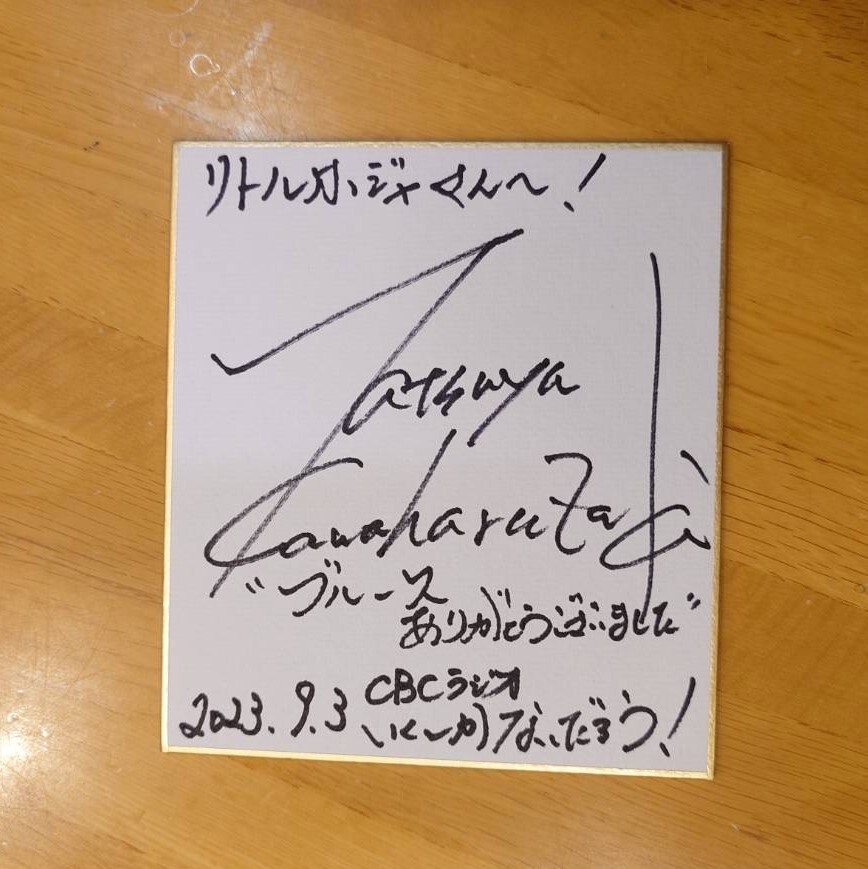 リトルカジャくんへ!
Tatsuya
Kawaharazaki
"ブルース
ありがとうございました"
2023.9.3 CBCラジオ